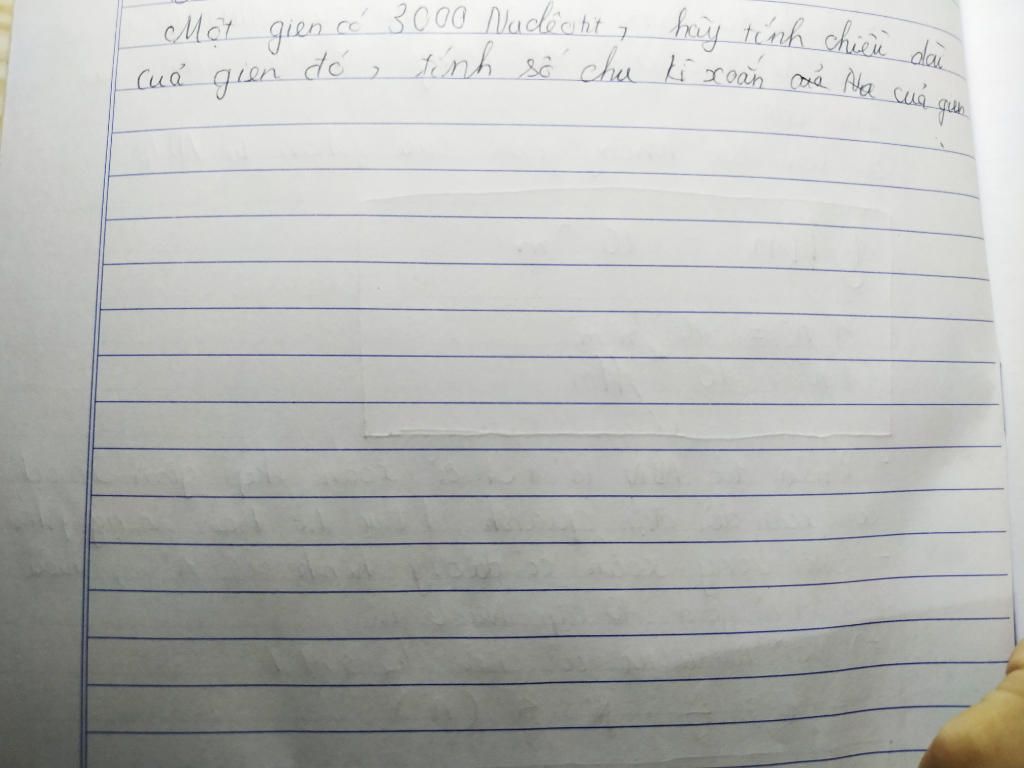 Một gien có 3000 Nuclêôtit, hãy tính chiều dài
cuả gien đó, tính số chu kì xoắn cuả gien